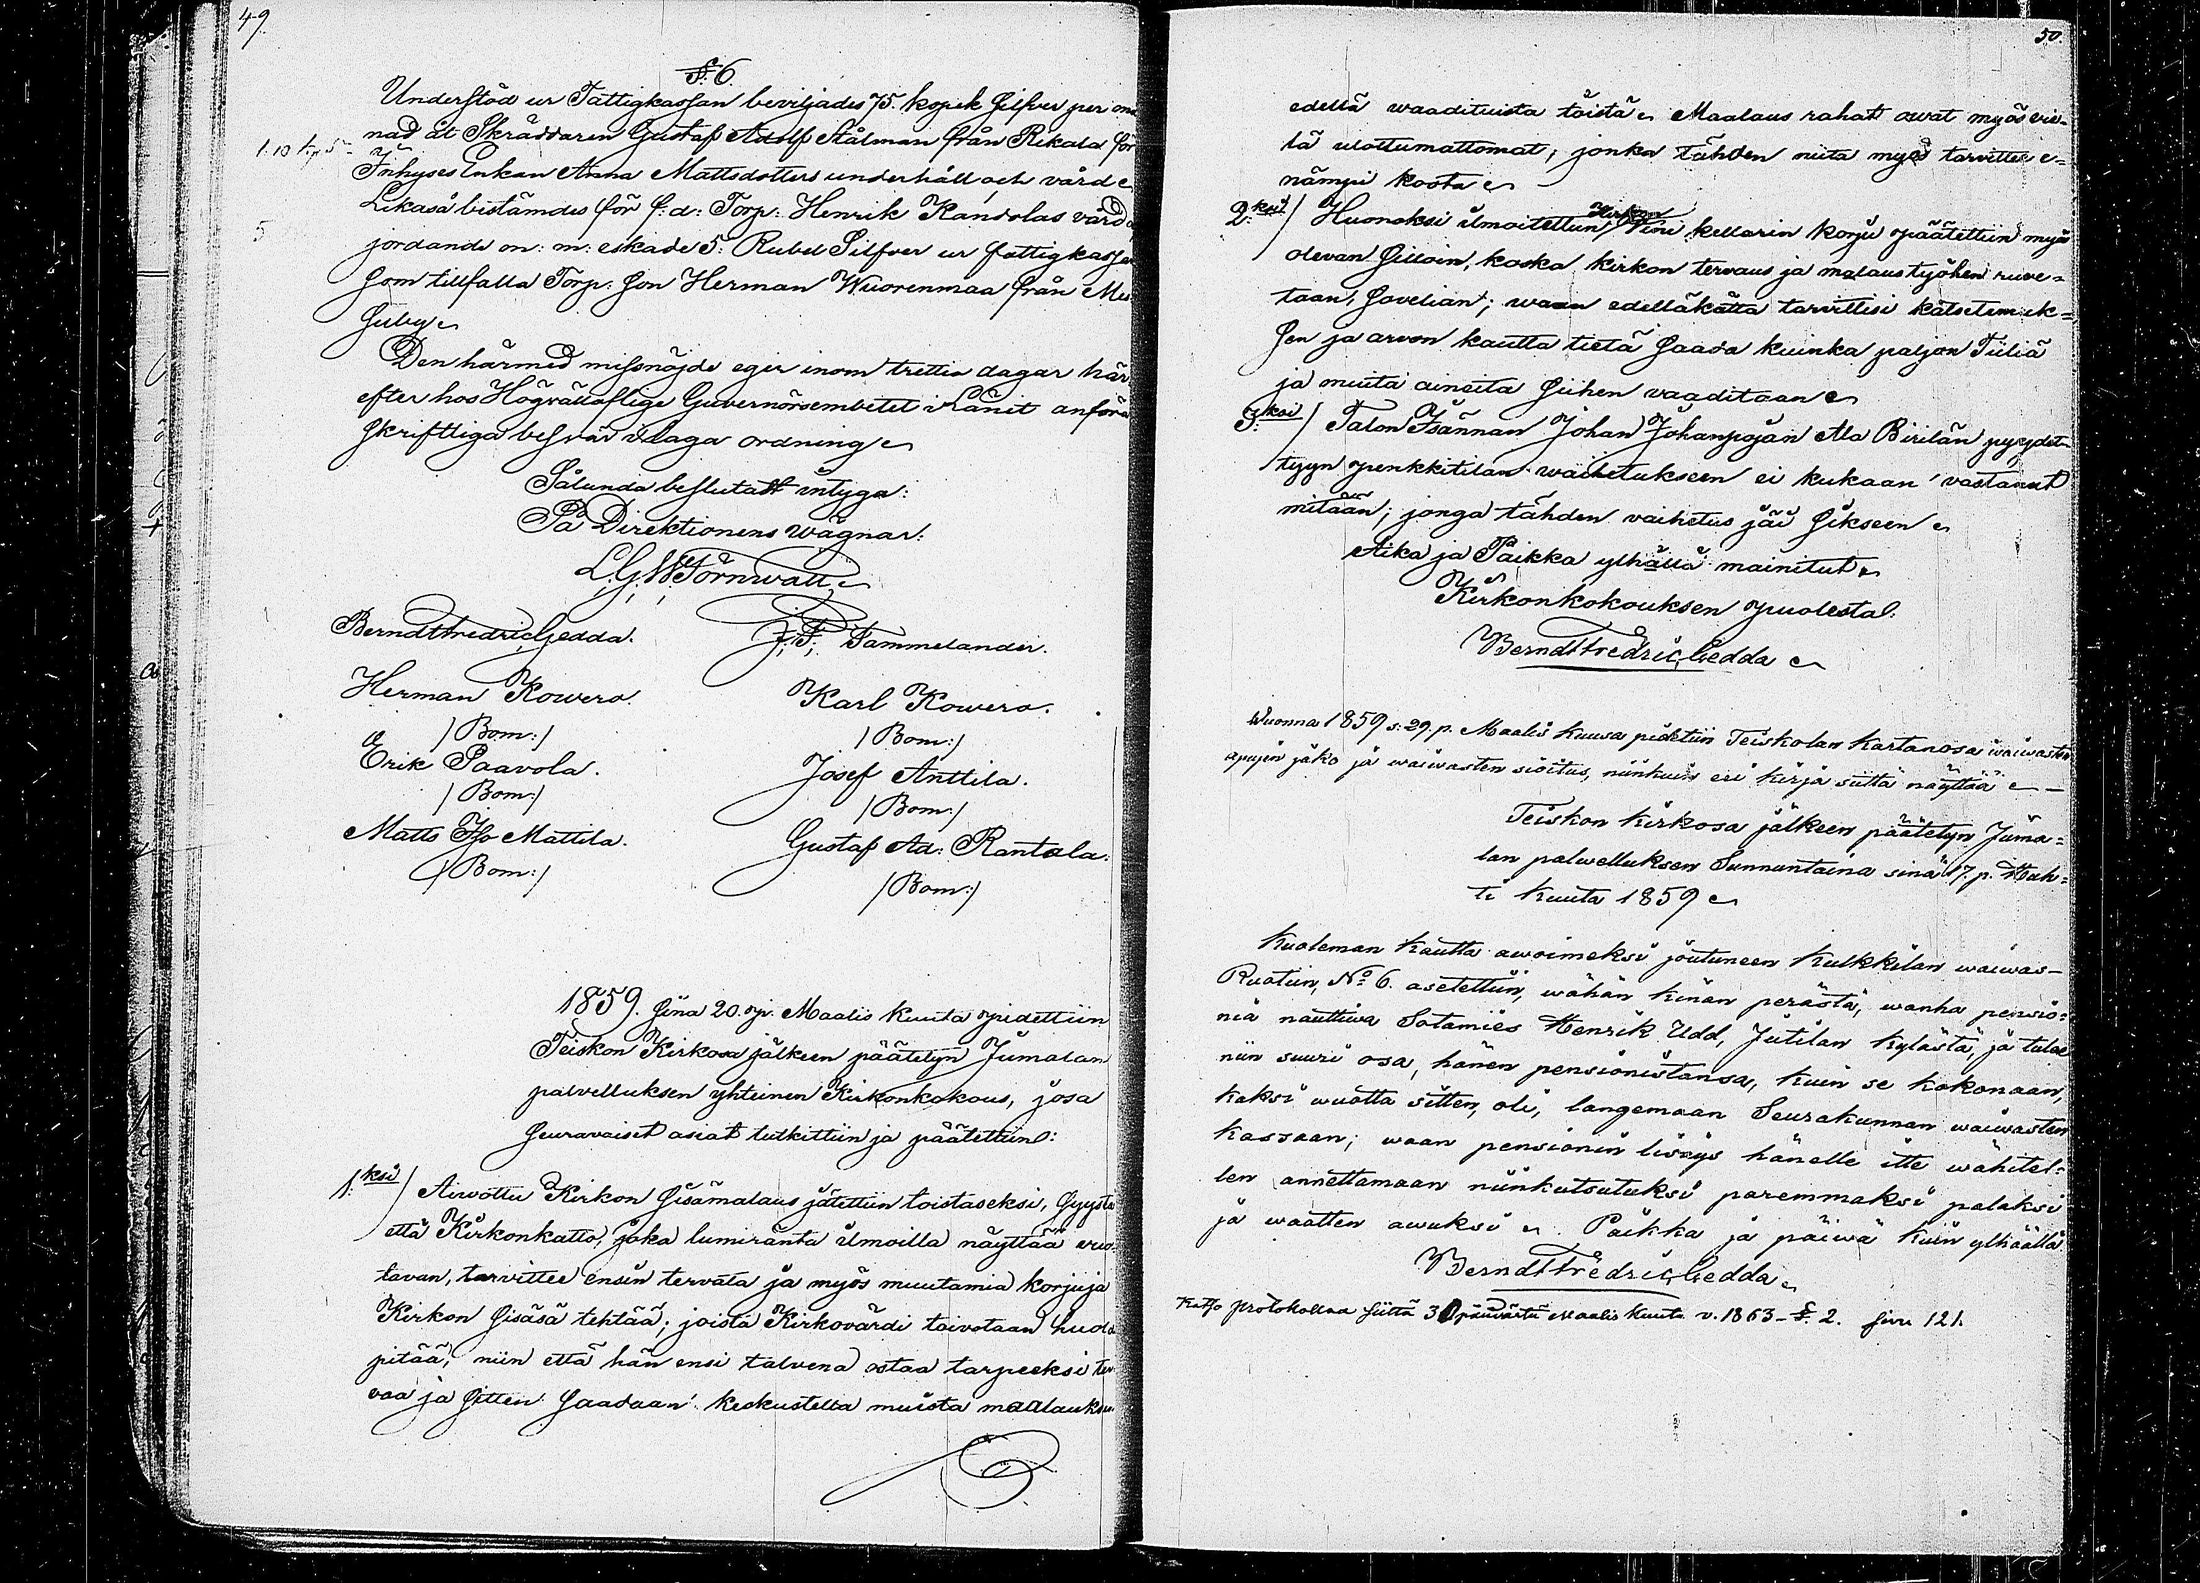 49.
§: 6.
Understöd ur Fattigkassan beviljades 75. kopek Silfver per må
nad åt Skräddaren Gustaf Adolf Stålman från Rikala för
1:10 kp S
Inhyses Enkan Anna Mattsdotters underhåll och vård
Likaså bestämdes för f: d: Torp: Henrik Kandolas vård
5
jordande m: m: eskade 5: Rubel Silfver ur fattigkassan
som tillfalla Torp: Son Herman Wuorenmaa från Mu
Den härmed missnöjde eger inom trettio dagar här
efter hos Högvälloflige Guvernörsembetet i Länet anföra
skriftliga besvär i laga ordning
Sålunda beslutadt intyga:
På Direktionens wägnar:
L. G. W. Törnwall
Berndt Fredric Gedda. J. F. Tammelander.
Herman Kowero. Karl Kowero.
/Bom:/ /Bom:/
Erik Paavola. Josef Anttila.
/Bom:/ /Bom:/
Matts Iso Mattila. Gustaf Ad: Rantala.
/Bom:/ /Bom:/
1859. sina 20. p. Maalis kuuta pidettiin
Teiskon Kirkosa jälkeen päätetyn Jumalan
palvelluksen yhteinen Kirkonkokous, josa
seuravaiset asiat tutkittiin ja päätettiin:
1:ksi/ Aiwottu Kirkon sisämalaus jätettiin toistaseksi, syystä
että Kirkonkatto, joka lumiränta ilmoilla näyttää vuo
tavan, tarvittee ensin tervata ja myös muutamia korjuja
Kirkon sisäsä tehtää; joista Kirkovärdi toivotaan huole
pitää, niin että hän ensi talvena ostaa tarpeeksi ter
vaa ja sitten saadaan keskustella muista maalauksen
50.
edellä waadituista töistä Maalaus rahat owat myös vie-
lä ulottumattomat, jonka tähden niitä myös tarvittee e-
nämpi koota
2:ksi/ Huonoksi ilmoitettun Kirkon Viini kellarin korju päätettiin myös
olevan silloin, koska kirkon tervaus ja malaus työhen ruve-
taan, sovelian; waan edelläkätta tarvittisi katsetemuk-
sen ja arvon kautta tietä saada kuinka paljon Tiiliä
ja muita aineita siihen vaaditaan
3:ksi/ Talon Isännan Johan Johanpojan Ala Birilän pyydet-
tyyn penkkitilan waihetukseen ei kukaan vastannut
mitään; jonga tähden vaihetus jäi sikseen
Aika ja Paikka ylhällä mainitut
Kirkonkokouksen puolesta:
Berndt Fredric Gedda
Wuonna 1859 s: 29. p. Maalis kuusa pidettiin Teiskolan kartanosa waiwasten
apujen jako ja waiwasten sioitus, niinkuin eri kirja siitä näyttää
Teiskon kirkosa jälkeen päätetyn Juma-
lan palwelluksen Sunnuntaina sinä 17. p. Huh-
ti kuuta 1859
Kuoleman kautta awoimeksi joutuneen Kulkkilan waiwas-
Ruotiin, No 6. asetettiin, wähän kinan perästä, wanha pensio-
niä nauttiwa Sotamies Henrik Udd, Jutilan kylästä, ja tulee
niin suuri osa, hänen pensionistansa, kuin se kokonaan,
kaksi wuotta sitten, oli, langemaan Seurakunnan waiwasten
kassaan; waan pensionin lisäys hänelle itte wähitel-
len annettamaan niinkutsutuksi paremmaksi palaksi
ja waatten awuksi Paikka ja päiwä kuin ylhäällä
Berndt Fredric Gedda
Katso protokollaa siittä 30 päiwästä Maalis kuuta v. 1863 - §. 2. sivu 121.